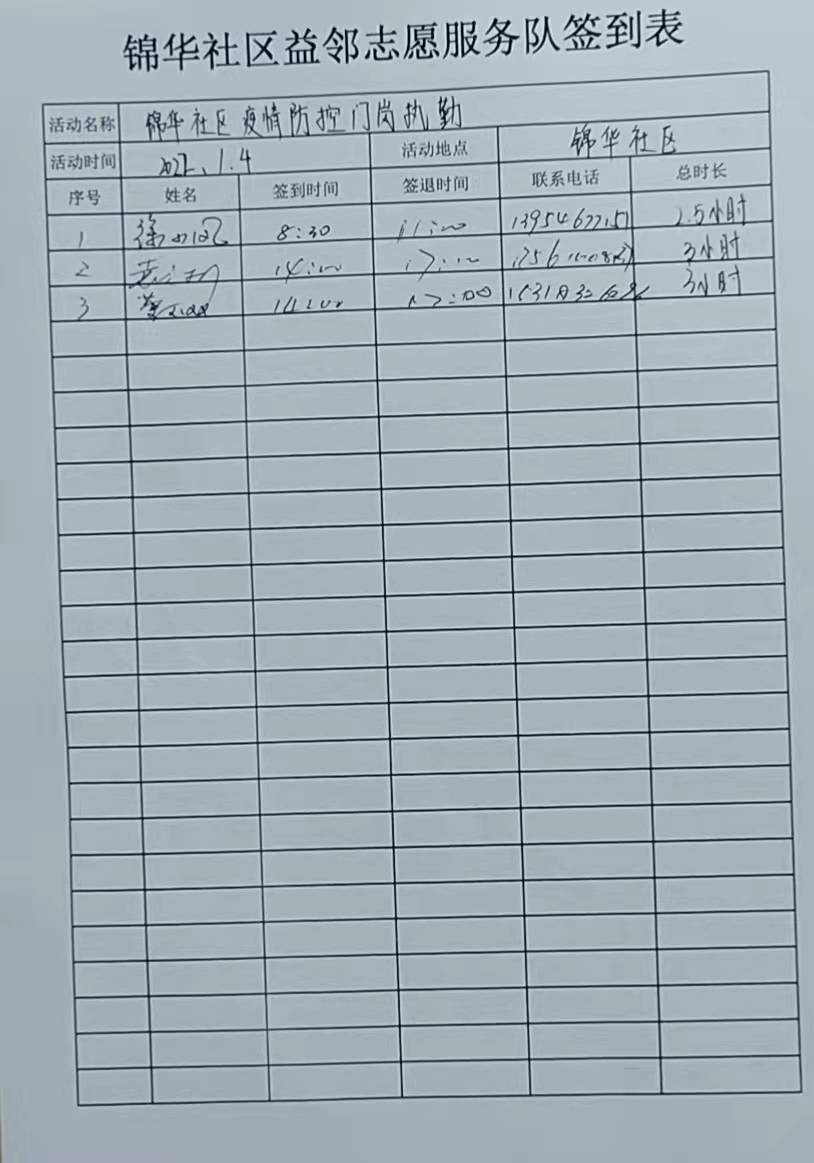 锦华社区益邻志愿服务队签到表
活动名称 锦华社区疫情防控门岗执勤
活动时间 2022.1.4 活动地点 锦华社区
序号 姓名 签到时间 签退时间 联系电话 总时长
1 8:30 11:00 2.5小时
2 14:00 17:00 3小时
3 14:00 17:00 3小时